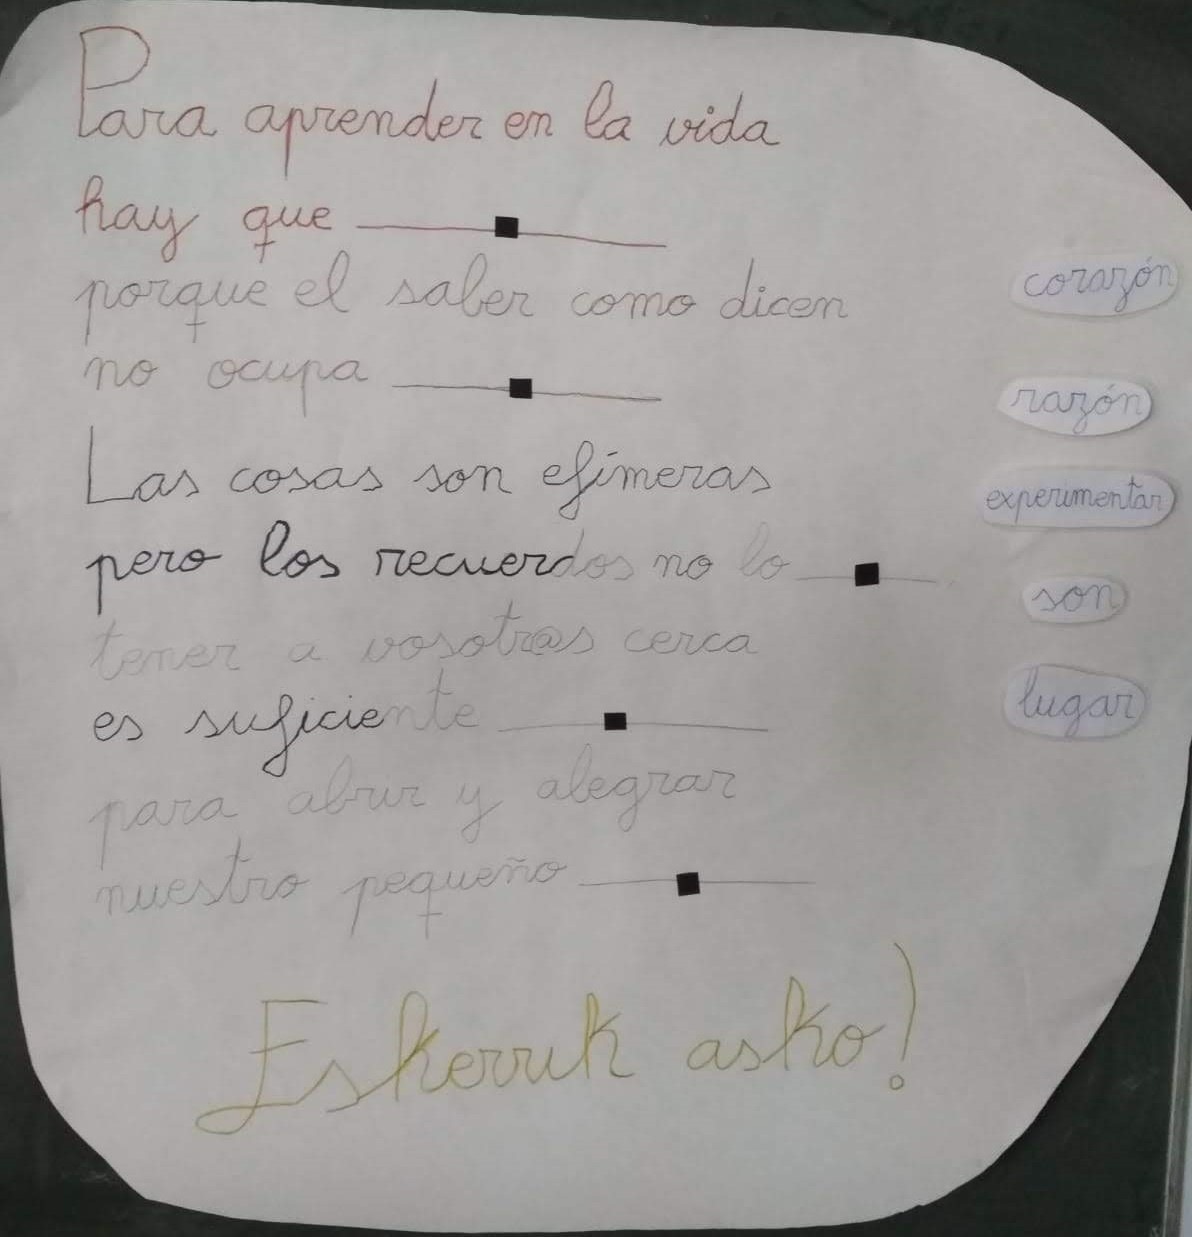 Para aprender en la vida
hay que
porque el saber como dicen
no ocupa
Las cosas son efímeras
pero los recuerdos no lo
tener a vosotr@s cerca
es suficiente
para abrir y alegrar
nuestro pequeño
corazón
razón
experimentar
son
lugar
Eskerrik asko!